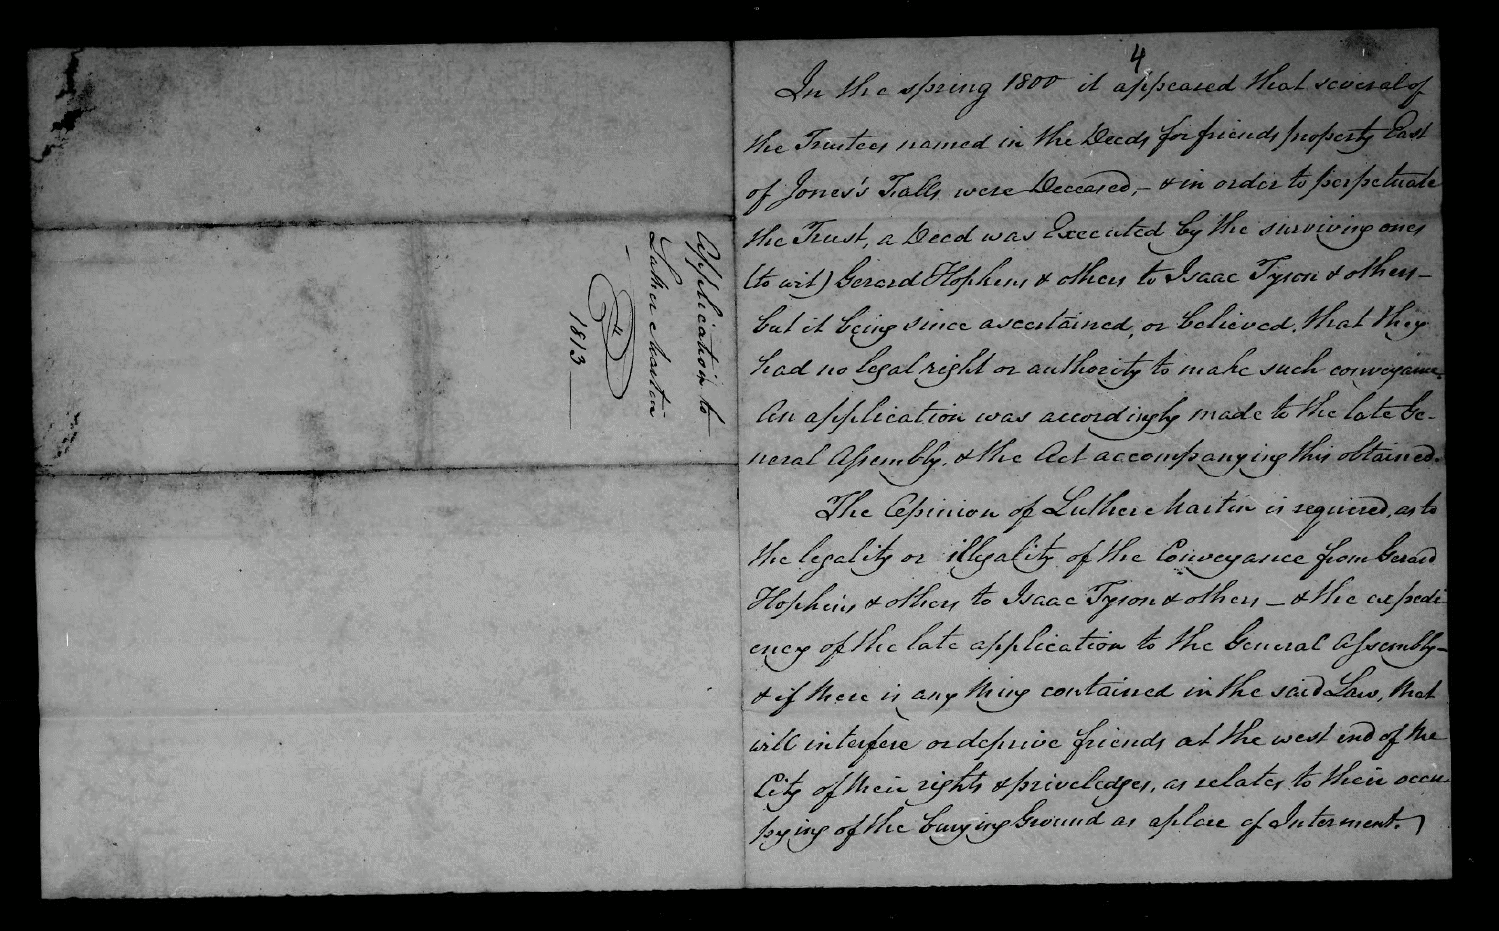 Application to
Luther Martin
4
1813
4
In the spring 1800 it appeared that several of
the Trustees named in the Deeds for friends property East
of Jones's Falls were Deceased, - & in order to perpetuate
the Trust, a Deed was Executed by the surviving ones
(to wit) Gerard Hopkins & others to Isaac Tyson & others -
but it being since ascertained, or believed, that they
had no legal right or authority to make such conveyance.
An application was accordingly made to the late Ge-
neral Assembly, & the Act accompanying this obtained.
The Opinion of Luther Martin is required, as to
the legality or illegality of the Conveyance from Gerard
Hopkins & others to Isaac Tyson & others - & the expedi-
ency of the late application to the General Assembly -
& if there is any thing contained in the said Law, that
will interfere or deprive friends at the west end of the
City of their rights & priveledges, as relates to their occu-
pying of the burying Ground as a place of Interment.